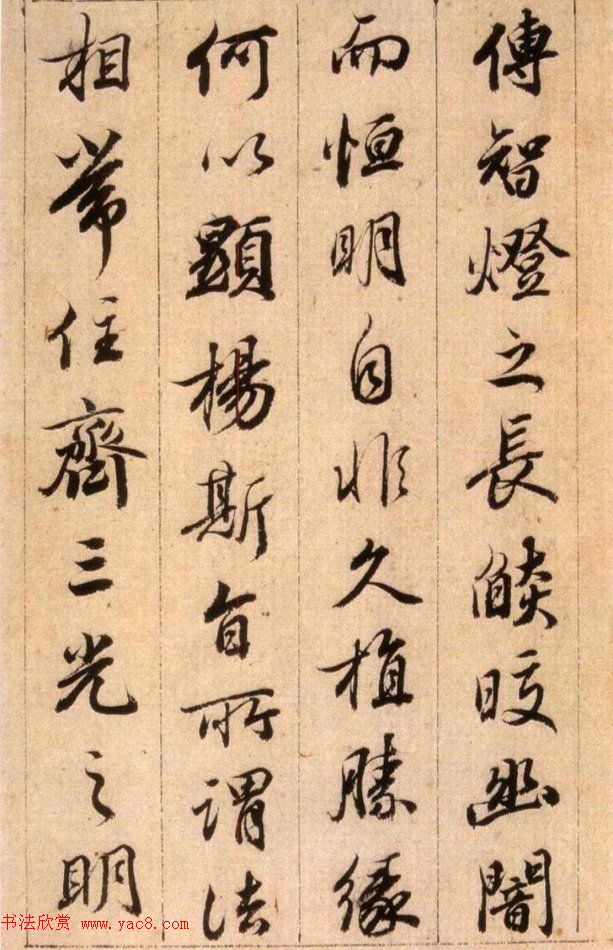 傳智燈之長燄皎幽闇
而恒明自非久植勝緣
何以顯楊斯旨所謂法
相常住齊三光之明
书法欣赏 www.yac8.com